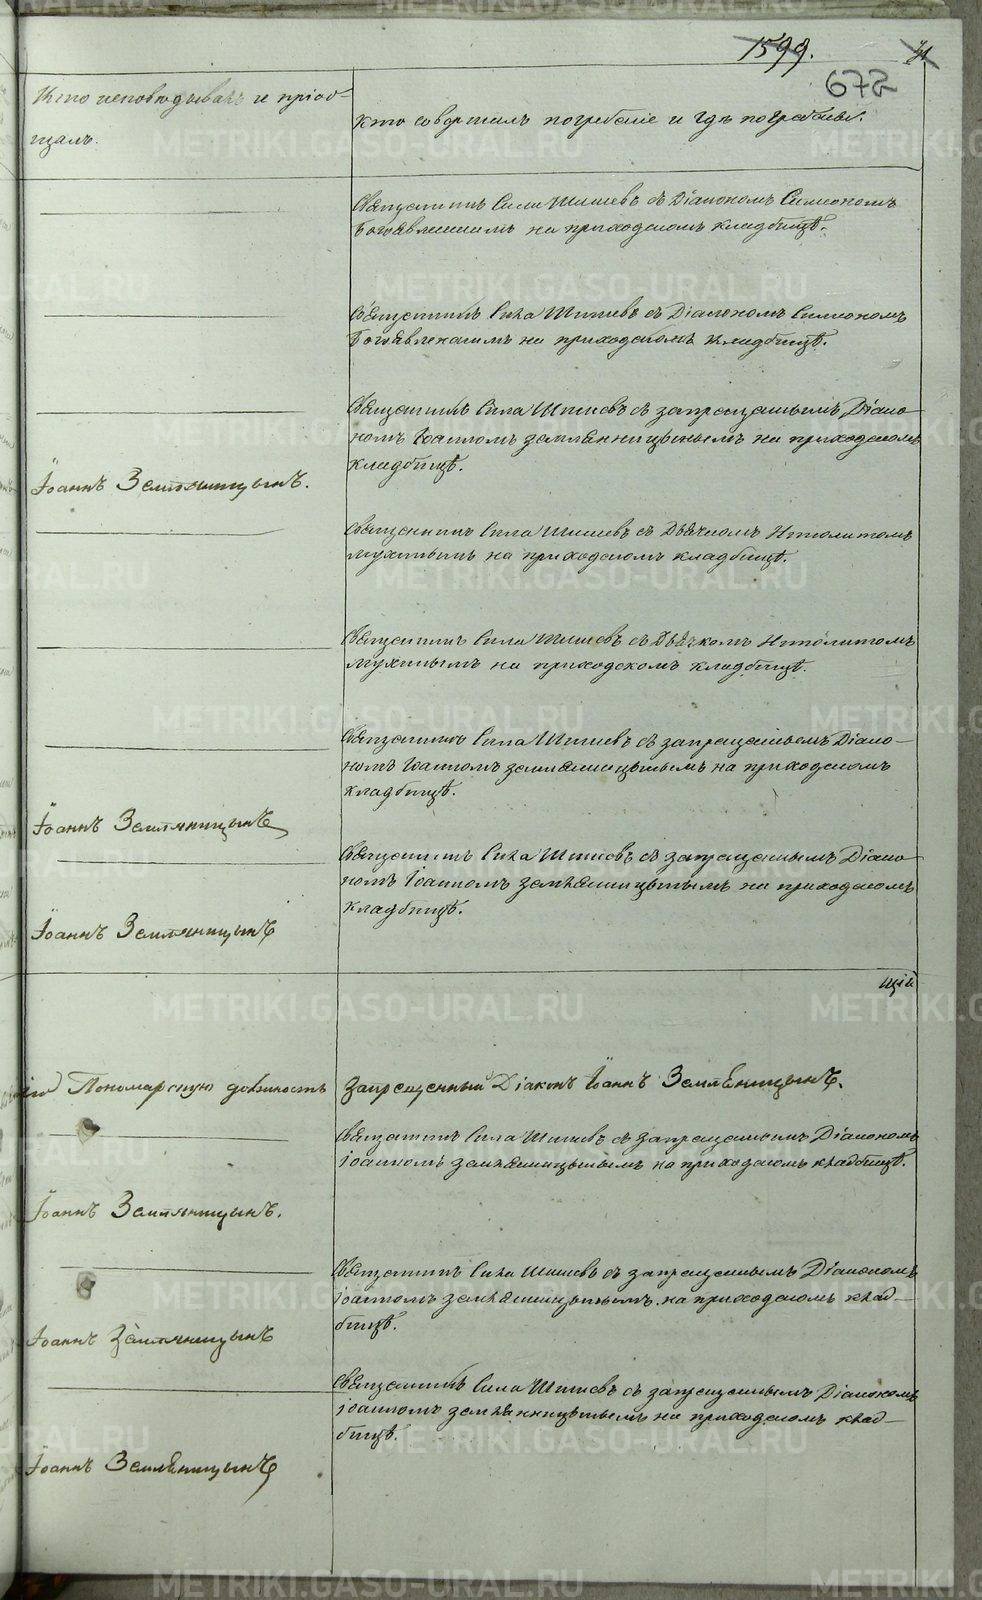 1599.
672
Кто исповѣдывалъ и пріоб-
щалъ.
Кто совершалъ погребеніе и гдѣ погребены.
Священникъ Сила Шишевъ съ Діакономъ Симеономъ
Богоявленскимъ на приходскомъ кладбищѣ.
Священникъ Сила Шишевъ съ Діакономъ Симеономъ
Богоявленскимъ на приходскомъ кладбищѣ.
Священникъ Сила Шишевъ съ запрещеннымъ Діако-
номъ Іоанномъ Земляницынымъ на приходскомъ
кладбищѣ.
Іоаннъ Земляницынъ.
Священникъ Сила Шишевъ съ Дьячкомъ Ипполитомъ
Мухинымъ на приходскомъ кладбищѣ.
Священникъ Сила Шишевъ съ Дьячкомъ Ипполитомъ
Мухинымъ на приходскомъ кладбищѣ.
Священникъ Сила Шишевъ съ запрещеннымъ Діако-
номъ Іоанномъ Земляницынымъ на приходскомъ
кладбищѣ.
Іоаннъ Земляницынъ
Священникъ Сила Шишевъ съ запрещеннымъ Діако-
номъ Іоанномъ Земляницынымъ на приходскомъ
кладбищѣ.
Іоаннъ Земляницынъ
щій
Пономарскую должность Запрещенный Діаконъ Іоаннъ Земляницынъ.
Священникъ Сила Шишевъ съ запрещеннымъ Діакономъ
Іоанномъ Земляницынымъ на приходскомъ кладбищѣ.
Іоаннъ Земляницынъ.
Священникъ Сила Шишевъ съ запрещеннымъ Діакономъ
Іоанномъ Земляницынымъ на приходскомъ клад-
бищѣ.
Іоаннъ Земляницынъ
Священникъ Сила Шишевъ съ запрещеннымъ Діакономъ
Іоанномъ Земляницынымъ на приходскомъ клад-
бищѣ.
Іоаннъ Земляницынъ
METRIKI.GASO-URAL.RU